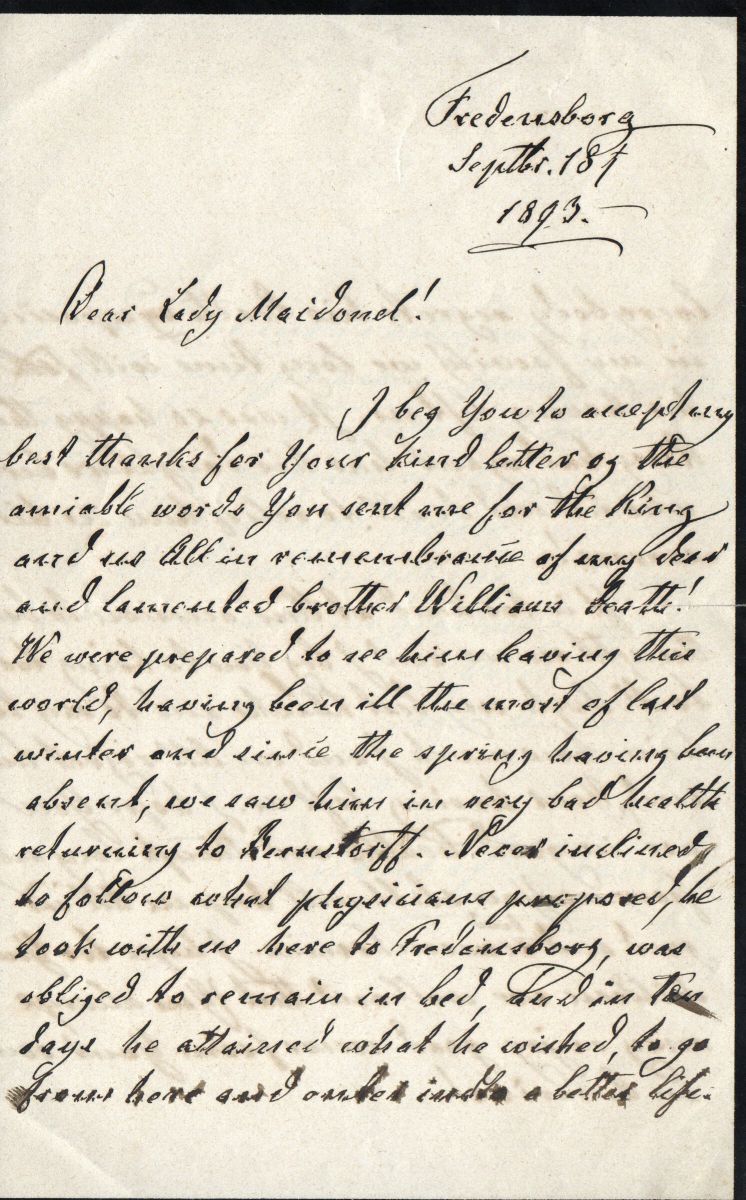 Fredensborg
Septbr. 18t
1893.
Dear Lady Maidonel!
I beg You to accept my
best thanks for Your kind letter og the
amiable words You sent me for the King
and us All in remembrance of my dear
and lamented brother Williams Death!
We were prepared to see him leaving this
world, having been ill the most of last
winter and since the spring having been
absent, we saw him in very bad health
returning to Bernstorff. Never inclined
to follow what physicians proposed, he
took with us here to Fredensborg, was
obliged to remain in bed, and in ten
days he attained what he wished, to go
from here and enter indto a better life.